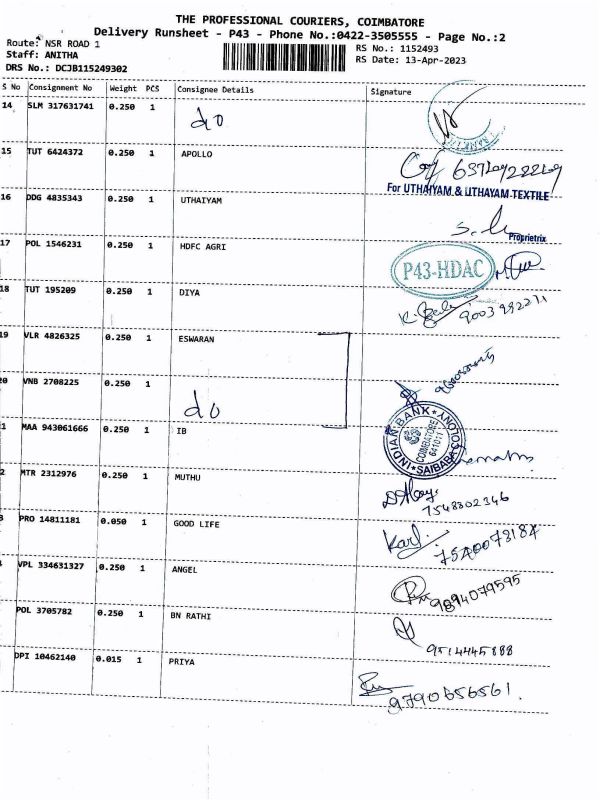 THE PROFESSIONAL COURIERS, COIMBATORE
Delivery Runsheet - P43 - Phone No.:0422-3505555 - Page No.:2
Route: NSR ROAD 1
RS No.: 1152493
Staff: ANITHA
RS Date: 13-Apr-2023
DRS No.: DCJB115249302
S No Consignment No Weight PCS Consignee Details Signature
14 SLM 317631741 0.250 1 do
15 TUT 6424372 0.250 1 APOLLO
For UTHAIYAM & UTHAYAM TEXTILE
16 DDG 4835343 0.250 1 UTHAIYAM
Proprietrix
17 POL 1546231 0.250 1 HDFC AGRI P43-HDAC
18 TUT 195209 0.250 1 DIYA 9003992211
19 VLR 4826325 0.250 1 ESWARAN
20 VNB 2708225 0.250 1 do
INDIAN BANK COIMBATORE 641011 SAIBABA COLONY
1 MAA 943061666 0.250 1 IB
2 MTR 2312976 0.250 1 MUTHU
7548802346
3 PRO 14811181 0.050 1 GOOD LIFE
VPL 334631327 0.250 1 ANGEL
9894079595
POL 3705782 0.250 1 BN RATHI
9514445888
DPI 10462140 0.015 1 PRIYA
9790656561.